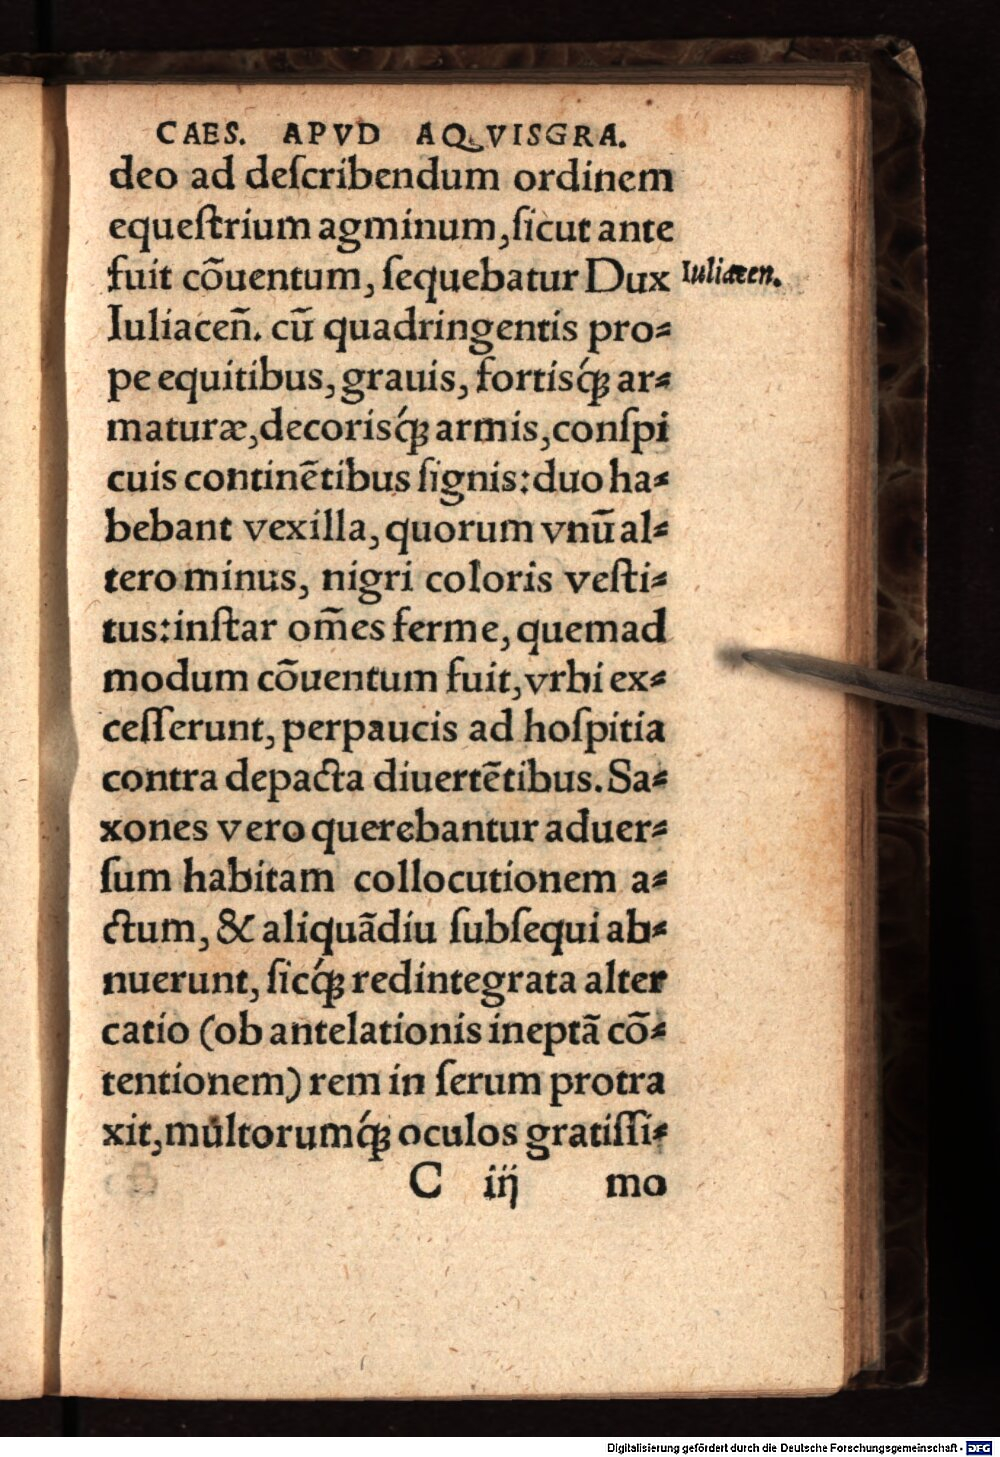 CAES. APVD AQVISGRA.
deo ad deſcribendum ordinem
equeſtrium agminum, ſicut ante
fuit cõuentum, ſequebatur Dux
Iuliacen.
Iuliaceñ. cũ quadringentis pro⸗
pe equitibus, grauis, fortisq́ꝫ ar⸗
maturæ, decorisq́ꝫ armis, conſpi
cuis continẽtibus ſignis: duo ha⸗
bebant vexilla, quorum vnũ al⸗
tero minus, nigri coloris veſti⸗
tus: inſtar om̃es ferme, quemad
modum cõuentum fuit, vrbi ex⸗
ceſſerunt, perpaucis ad hoſpitia
contra depacta diuertẽtibus. Sa⸗
xones vero querebantur aduer⸗
ſum habitam collocutionem a⸗
ctum, & aliquãdiu ſubſequi ab⸗
nuerunt, ſicq́ꝫ redintegrata alter
catio (ob antelationis ineptã cõ⸗
tentionem) rem in ſerum protra
xit, multorumq́ꝫ oculos gratiſſi⸗
C iij mo
Digitalisierung gefördert durch die Deutsche Forschungsgemeinschaft - DFG